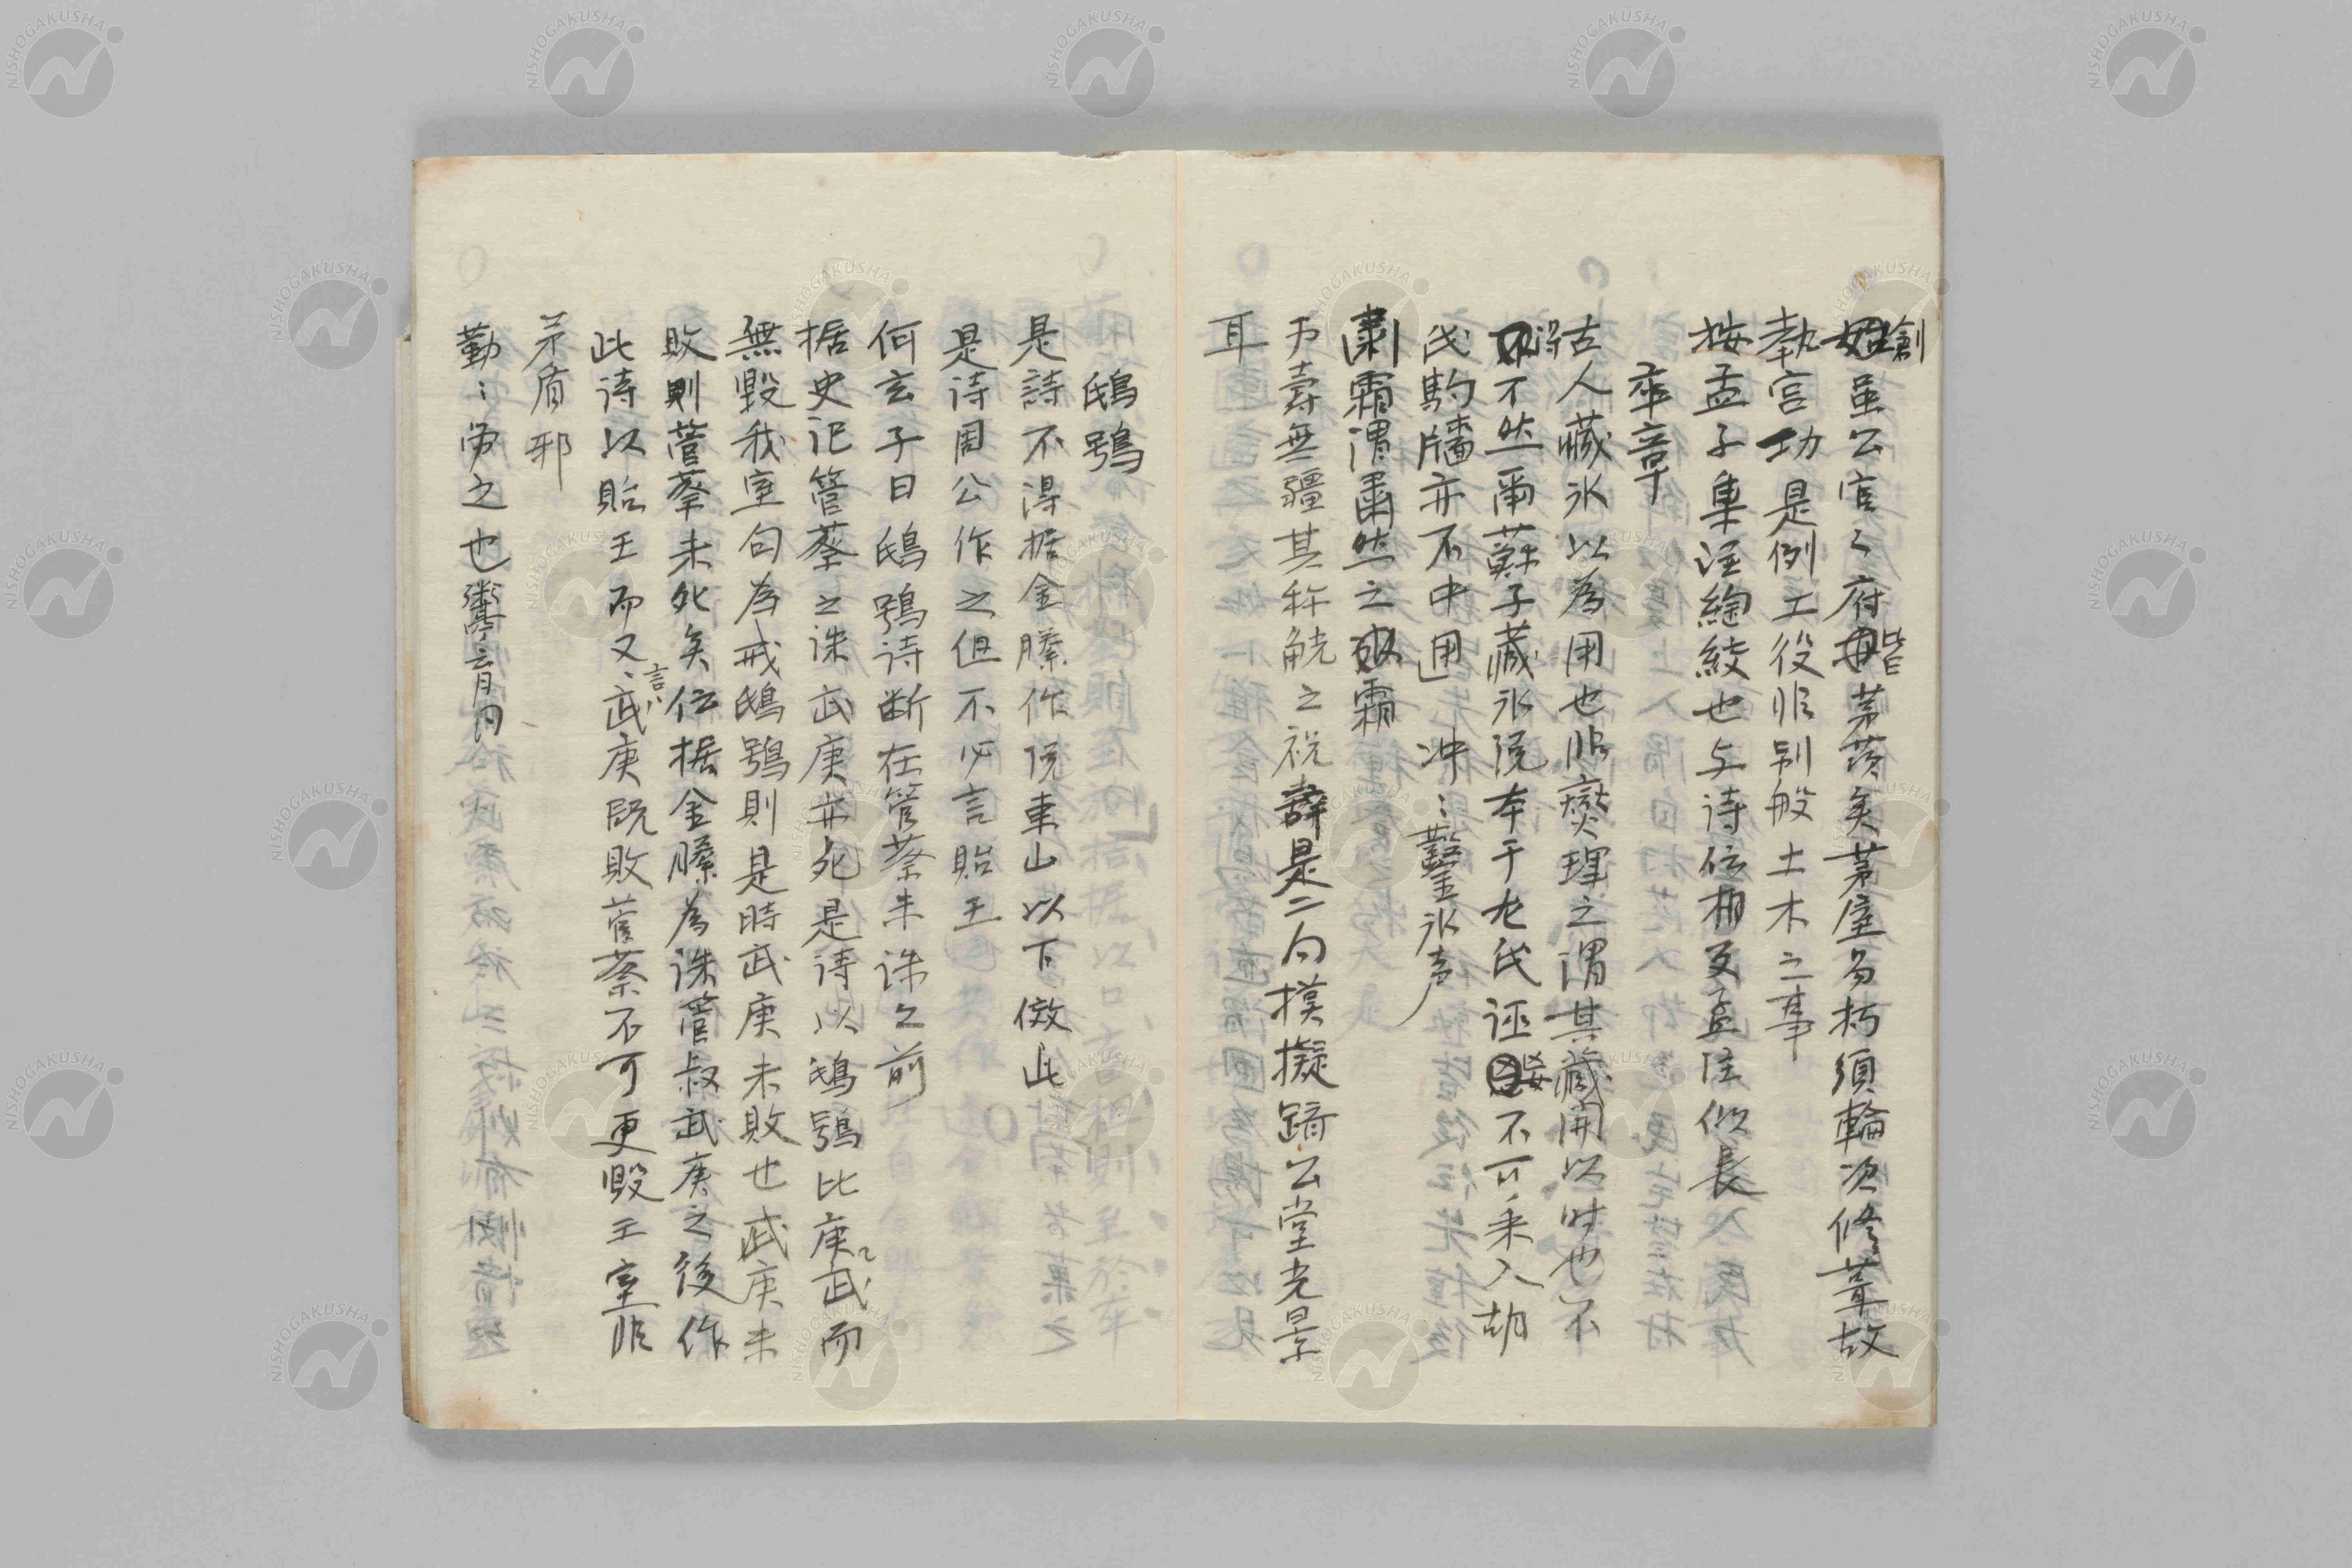 創
始虽公宮之府皆茅茨矣茅屋易朽須輪次修葺故
執宮功是例工役非别般土木之事
按孟子集注綯絞也与詩伝相反孟注似長
卒章
古人蔵氷以為用也非燮理之謂其蔵開以时也不
得不然爾蘇子蔵氷説本于左氏誣妄不可采入胡
氏駒牆亦不中用 冲〻鑿氷声
肅霜謂肅然之霜
万壽無疆其称觥之祝辞是二句摸擬躋公堂光景
耳
鴟鴞
是詩不得据金縢作説東山以下倣此
是诗周公作之但不必言貽王
何玄子曰鴟鴞诗断在管蔡未誅之前
据史记管蔡之誅武庚亦死是诗以鴟鴞比庚武而
無毀我室句為戒鴟鴞則是時武庚未敗也武庚未
敗則菅蔡未死矣伝据金縢為誅管叔武庚之後作
此诗以貽王而又言武庚既敗菅蔡不可更毀王室非
矛盾邪
勤〻労之也鬻